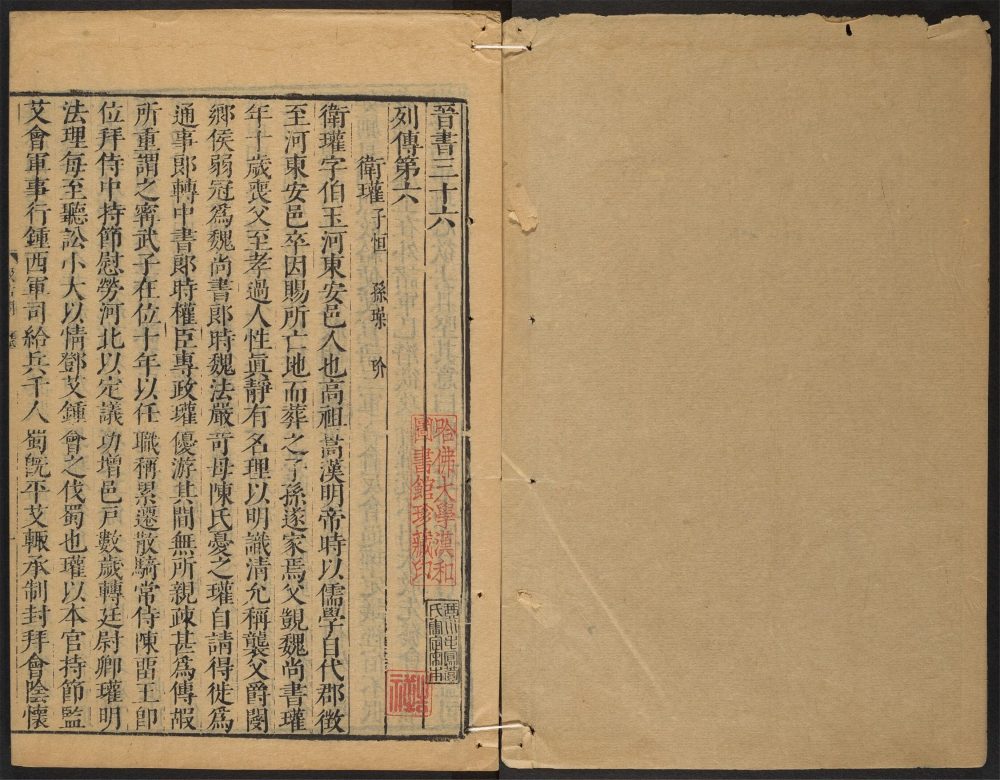 晉書三十六
列傳第六
衛瓘 子恒 孫璪 玠
衛瓘字伯玉河東安邑人也高祖暠漢明帝時以儒學自代郡徵
至河東安邑卒因賜所亡地而葬之子孫遂家焉父覬魏尚書瓘
年十歲喪父至孝過人性真靜有名理以明識清允稱襲父爵閿
鄉侯弱冠爲魏尚書郎時魏法嚴苛母陳氏憂之瓘自請得徙爲
通事郎轉中書郎時權臣專政瓘優游其間無所親疎甚爲傅嘏
所重謂之甯武子在位十年以任職稱累遷散騎常侍陳畱王卽
位拜侍中持節慰勞河北以定議功增邑戸數歲轉廷尉卿瓘明
法理每至聽訟小大以情鄧艾鍾會之伐蜀也瓘以本官持節監
艾會軍事行鍾西軍司給兵千人蜀旣平艾輙承制封拜會陰懷
哈佛大學漢和
圖書館珍藏印